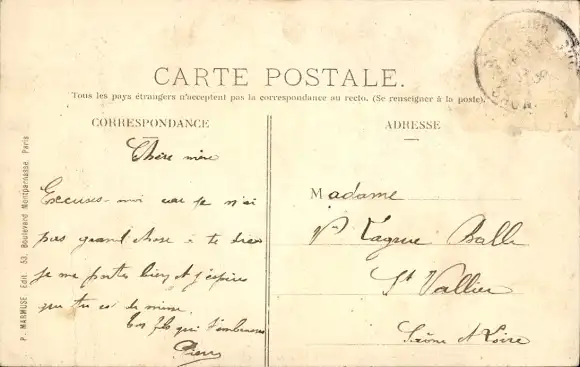 CARTE POSTALE.
Tous les pays étrangers n'acceptent pas la correspondance au recto. (Se renseigner à la poste).
CORRESPONDANCE
Chère mère
Excuses-moi car je n'ai
pas grand chose à te dire
je me portes bien et j'espères
que tu es de même.
Ton fils qui t'embrasse
Pierre
ADRESSE
Madame
Vve Lagrue Balle
St Vallier
Saône et Loire
P. MARMUSE Edit. 53, Boulevard Montparnasse, Paris